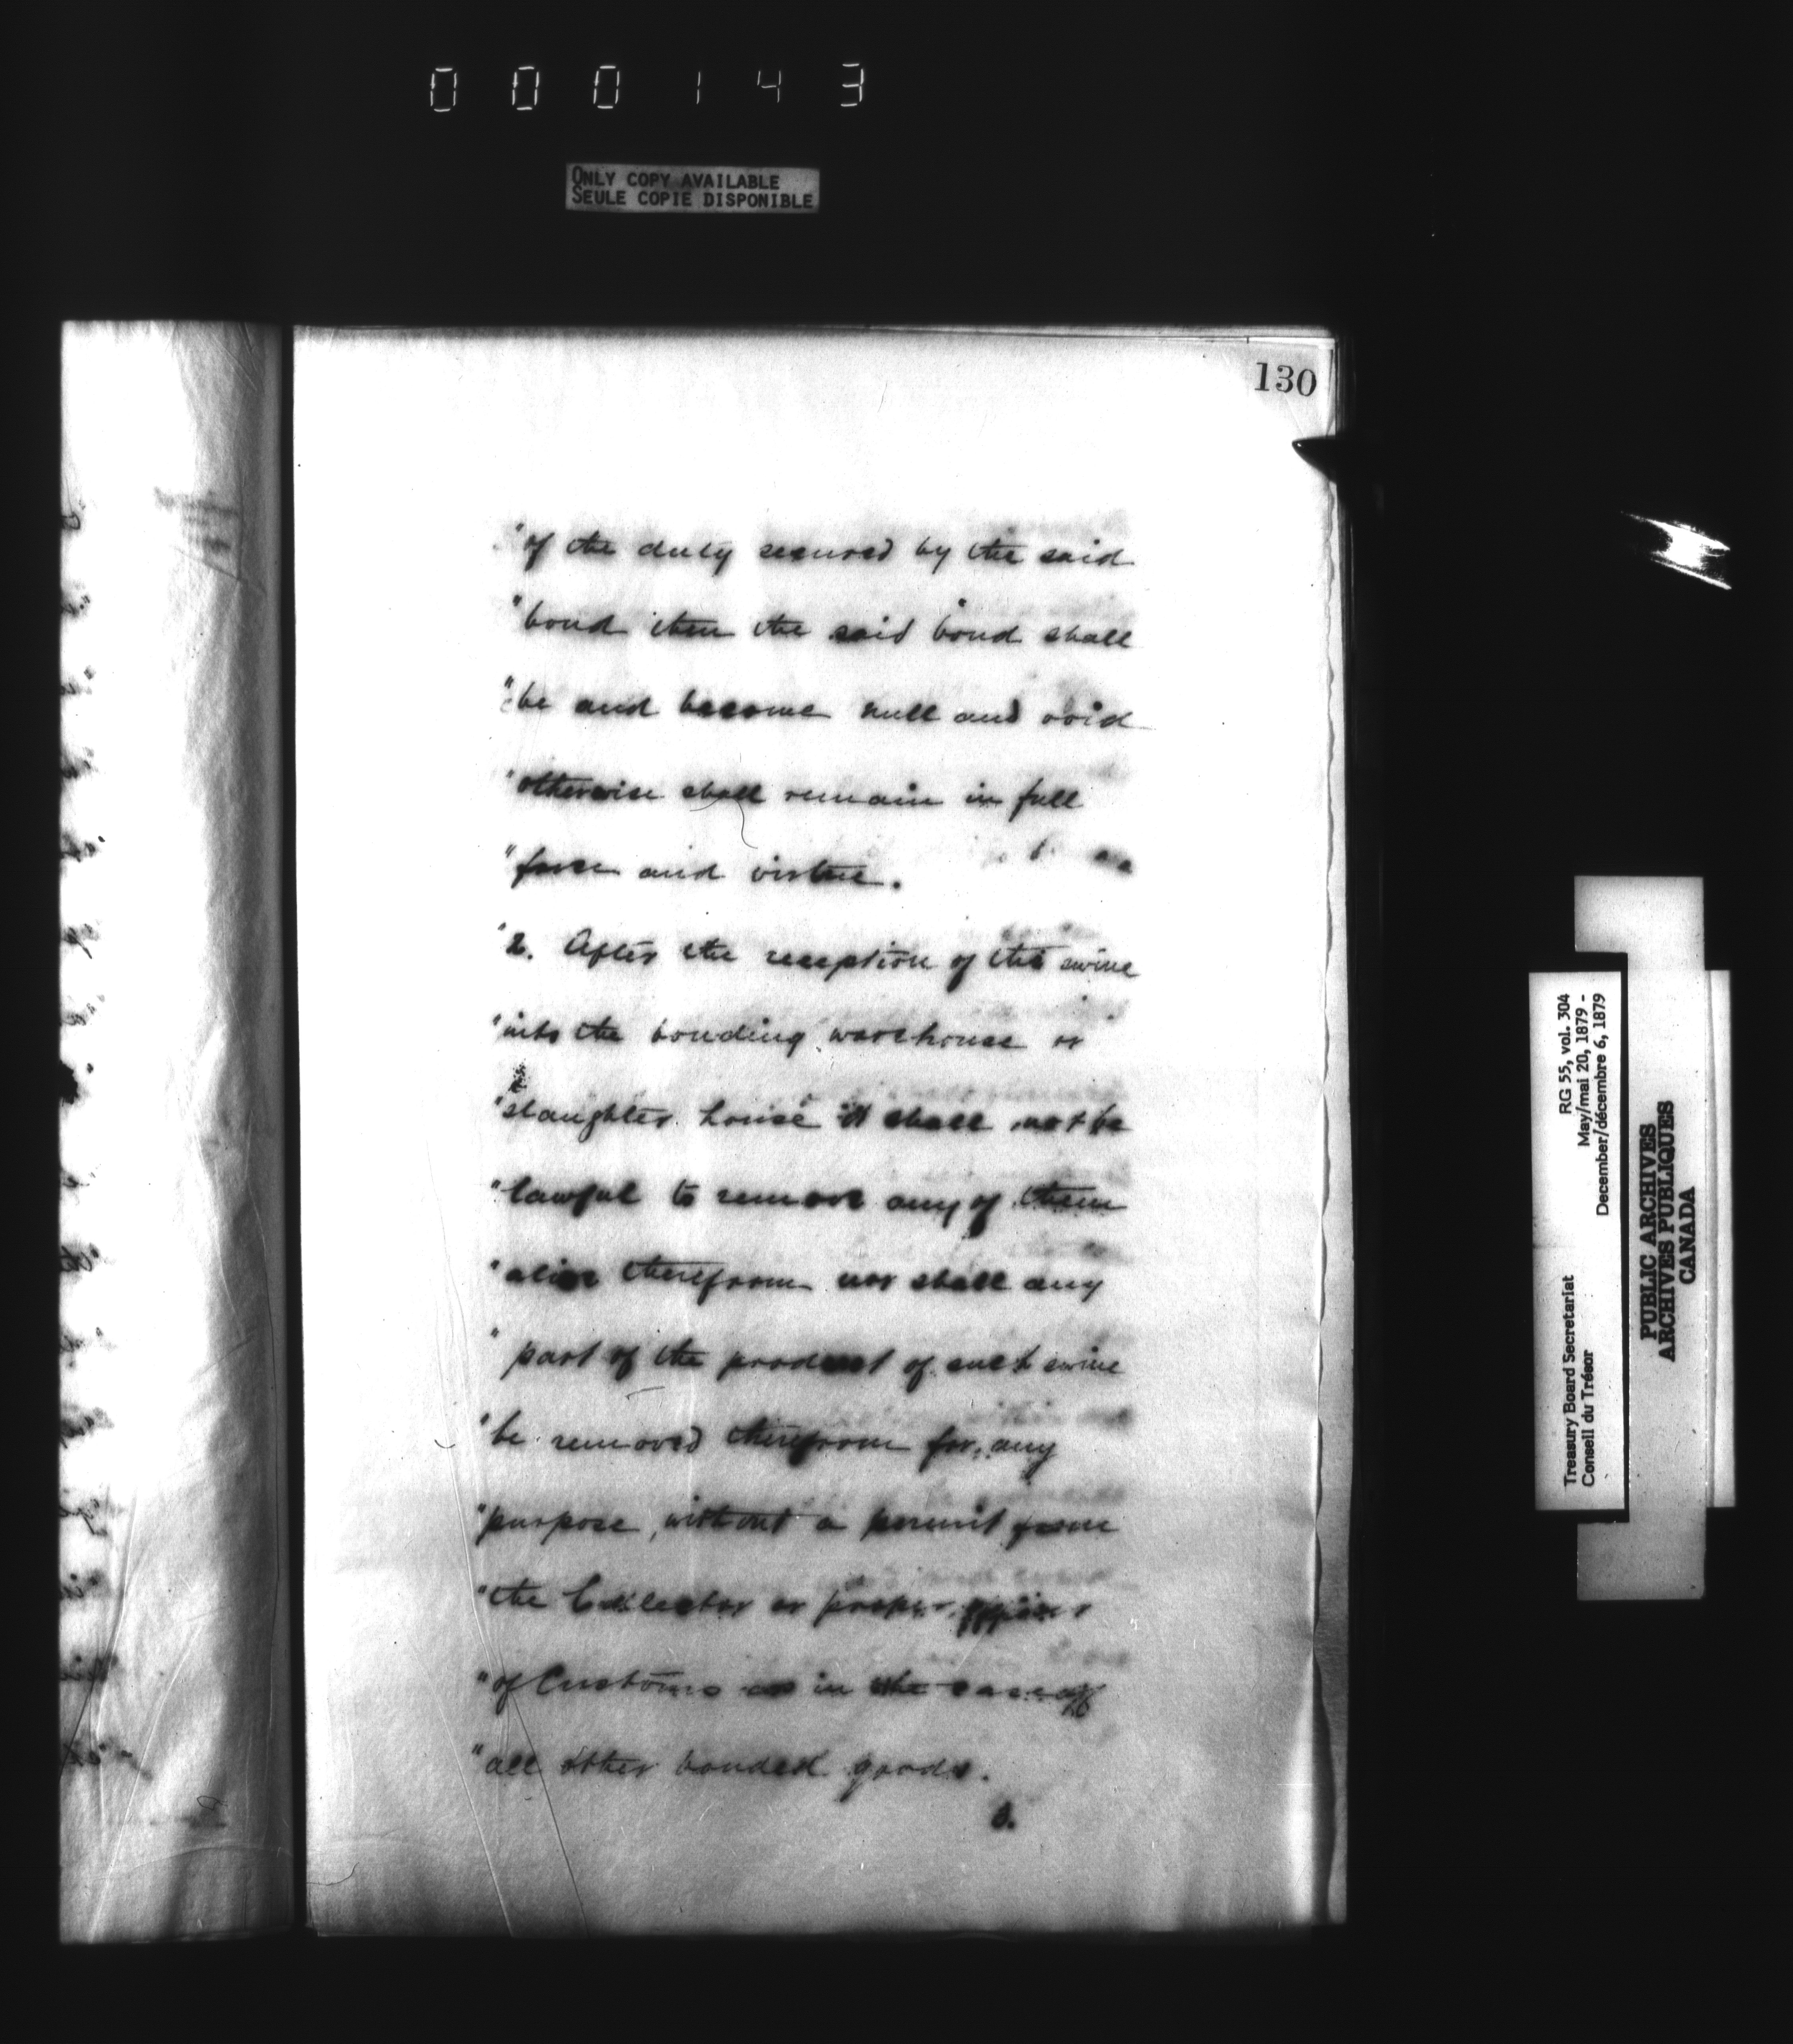 000143
ONLY COPY AVAILABLE
SEULE COPIE DISPONIBLE
130
"of the duty secured by the said
"bond then the said bond shall
"be and become null and void
"otherwise shall remain in full
"force and virtue.
"2. After the reception of the swine
"into the bonding warehouse or
"slaughter house it shall not be
"lawful to remove any of them
"alive therefrom nor shall any
"part of the product of such swine
"be removed therefrom for any
"purpose, without a permit from
"the Collector or proper officer
"of Customs as in the case of
"all other bonded goods.
3.
Treasury Board Secretariat RG 55, vol. 304
Conseil du Trésor May/mai 20, 1879 -
December/décembre 6, 1879
PUBLIC ARCHIVES
ARCHIVES PUBLIQUES
CANADA